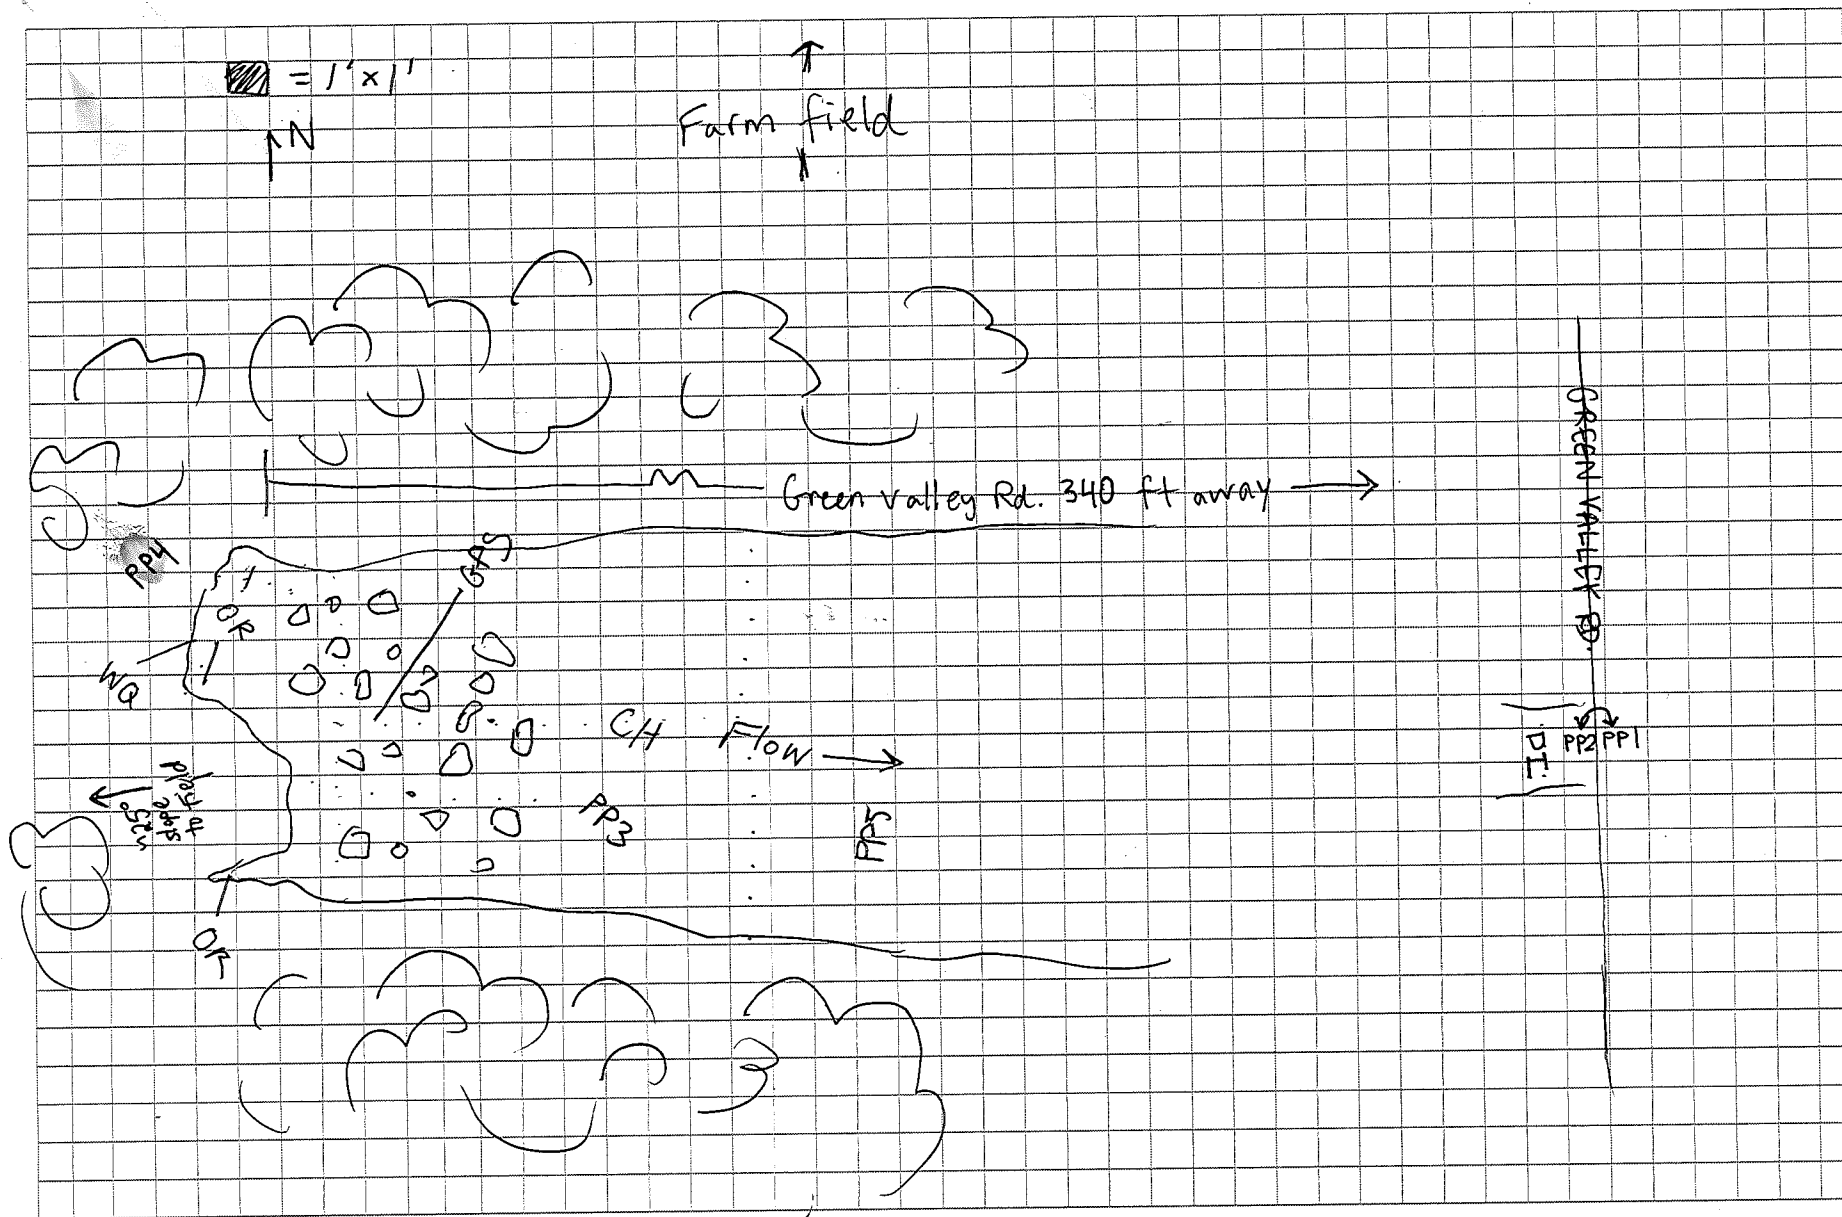 = 1' x 1'
N
Farm field
Green Valley Rd. 340 ft away
GREEN VALLEY RD.
PP4
GPS
OR
WQ
CH Flow
DI
PP2
PP1
~25°
slope
to field
PP3
PP5
OR